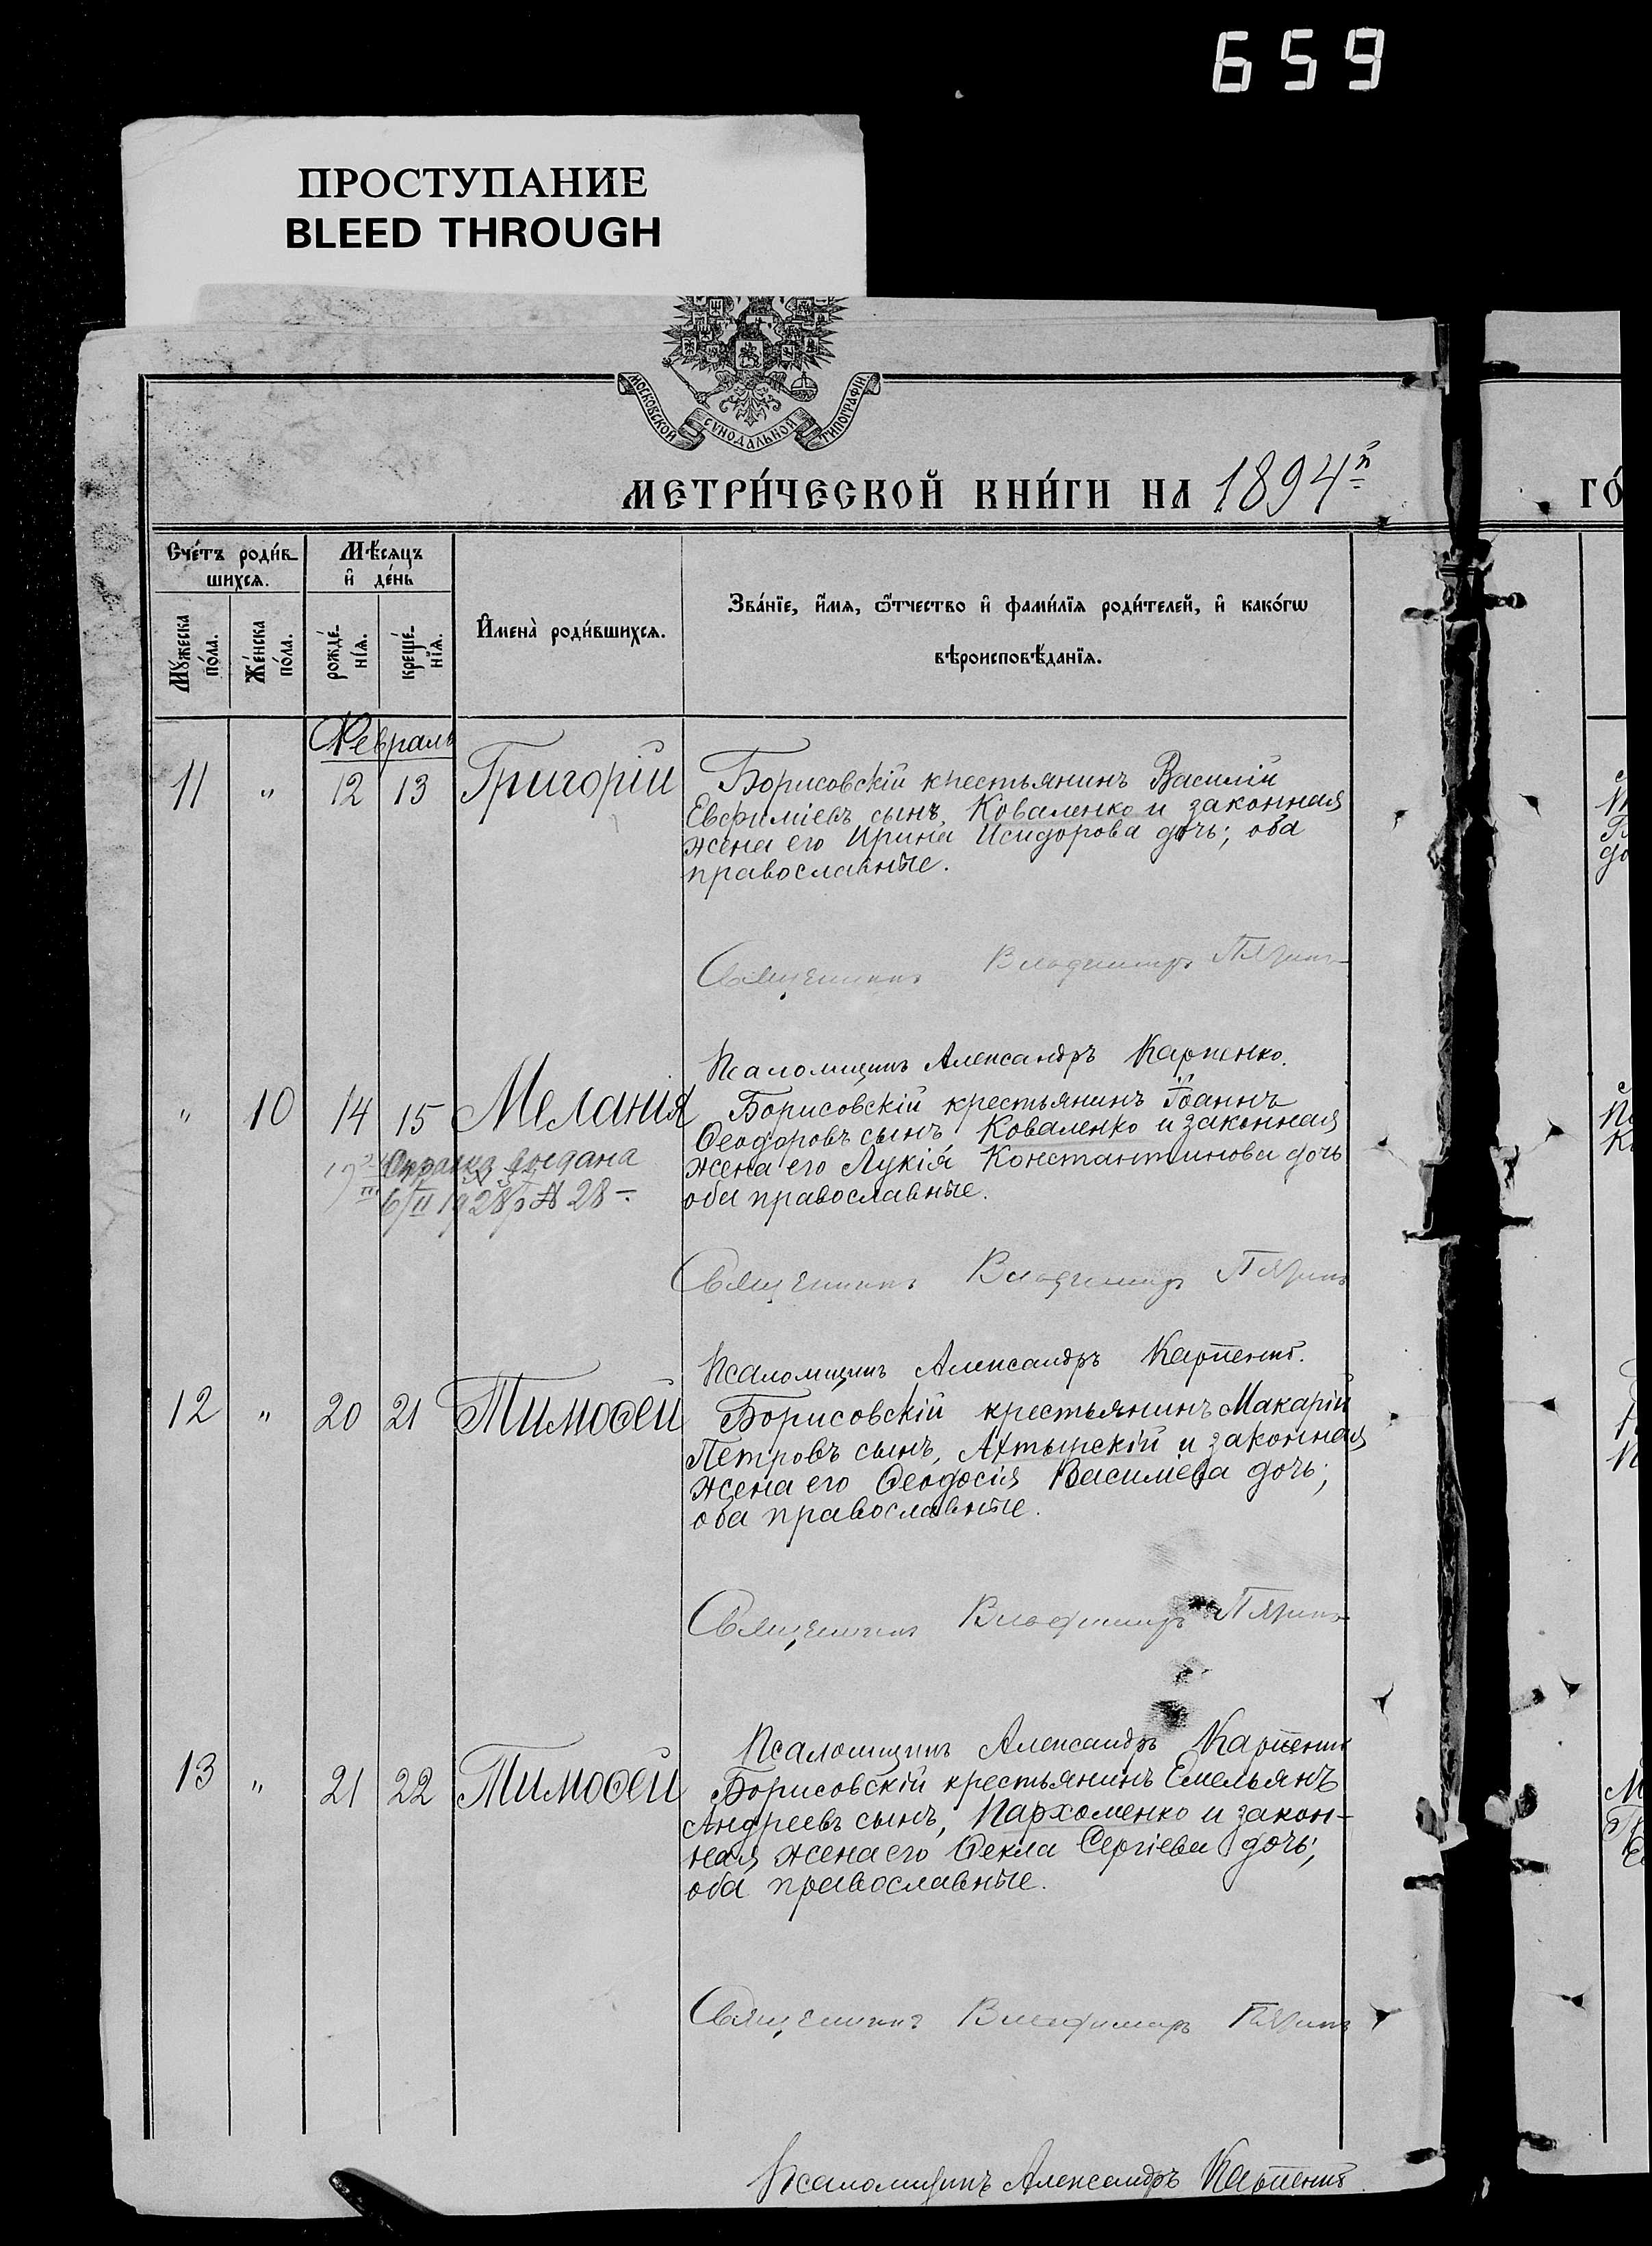 659
ПРОСТУПАНИЕ
BLEED THROUGH
МОСКОВСКОЙ СѴНОДАЛЬНОЙ ТИПОГРАФІИ
МЕТРИ́ЧЕСКОЙ КНИ́ГИ НА 1894й
ГО́
Сче́тъ роди́в-
шихсѧ.
Мѣ́сѧцъ
и҆ де́нь
Мꙋ́жеска по́ла.
Же́нска по́ла.
рожде́-нїѧ.
креще́-нїѧ.
И҆мена̀ роди́вшихсѧ.
Зва́нїе, и҆́мѧ, ѻ҆́тчество и҆ фами́лїѧ роди́телей, и҆ како́гѡ
вѣроисповѣ́данїѧ.
Февраль
11 " 12 13 Григорій Борисовскій крестьянинъ Василій
Евфиміевъ сынъ, Коваленко и законная
жена его Ирина Исидорова дочь; оба
православные.
Священникъ Владимиръ
Псаломщикъ Александръ Карпенко.
" 10 14 15 Меланія Борисовскій крестьянинъ Іоаннъ
Ѳеодоровъ сынъ, Коваленко и законная
жена его Лукія Константинова дочь
оба православные.
Справка выдана
6/II 1928 р № 28 –
Священникъ Владимиръ
Псаломщикъ Александръ Карпенко.
12 " 20 21 Тимоѳей Борисовскій крестьянинъ Макарій
Петровъ сынъ, Ахтырскій и законная
жена его Ѳеодосія Василіева дочь;
оба православные.
Священникъ Владимиръ
Псаломщикъ Александръ Карпенко
13 " 21 22 Тимоѳей Борисовскій крестьянинъ Емельянъ
Андреевъ сынъ, Пархоменко и закон-
ная жена его Ѳекла Сергіева дочь;
оба православные.
Священникъ Владимиръ
Псаломщикъ Александръ Карпенко